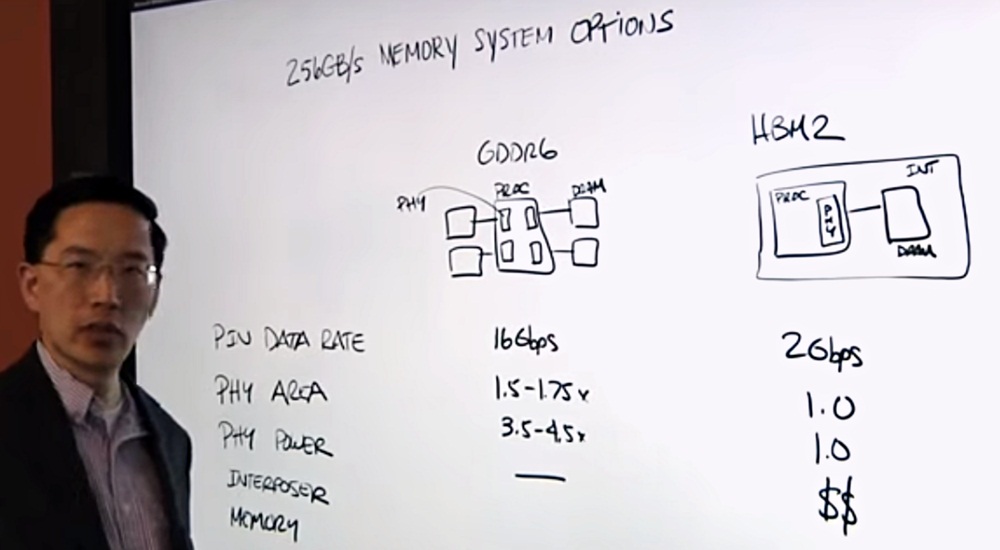 256GB/s MEMORY SYSTEM OPTIONS
GDDR6
HBM2
PHY
PROC
DRAM
INT
PROC
PHY
DRAM
PIN DATA RATE 16Gbps 2Gbps
PHY AREA 1.5-1.75x 1.0
PHY POWER 3.5-4.5x 1.0
INTERPOSER — $$
MEMORY